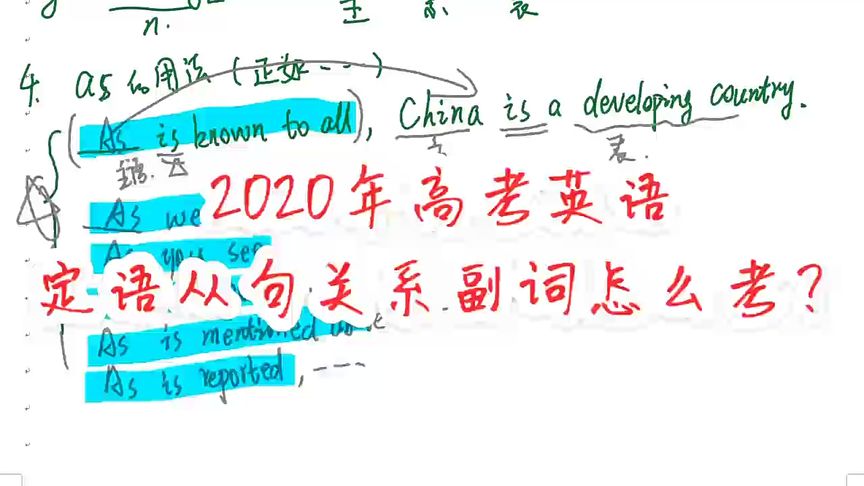 n. 主 系 表
4. as的用法(正如…)
(As is known to all), China is a developing country.
主语. 主 表.
As we
As you see
2020年高考英语
定语从句关系副词怎么考?
As is mentioned above
As is reported, ----